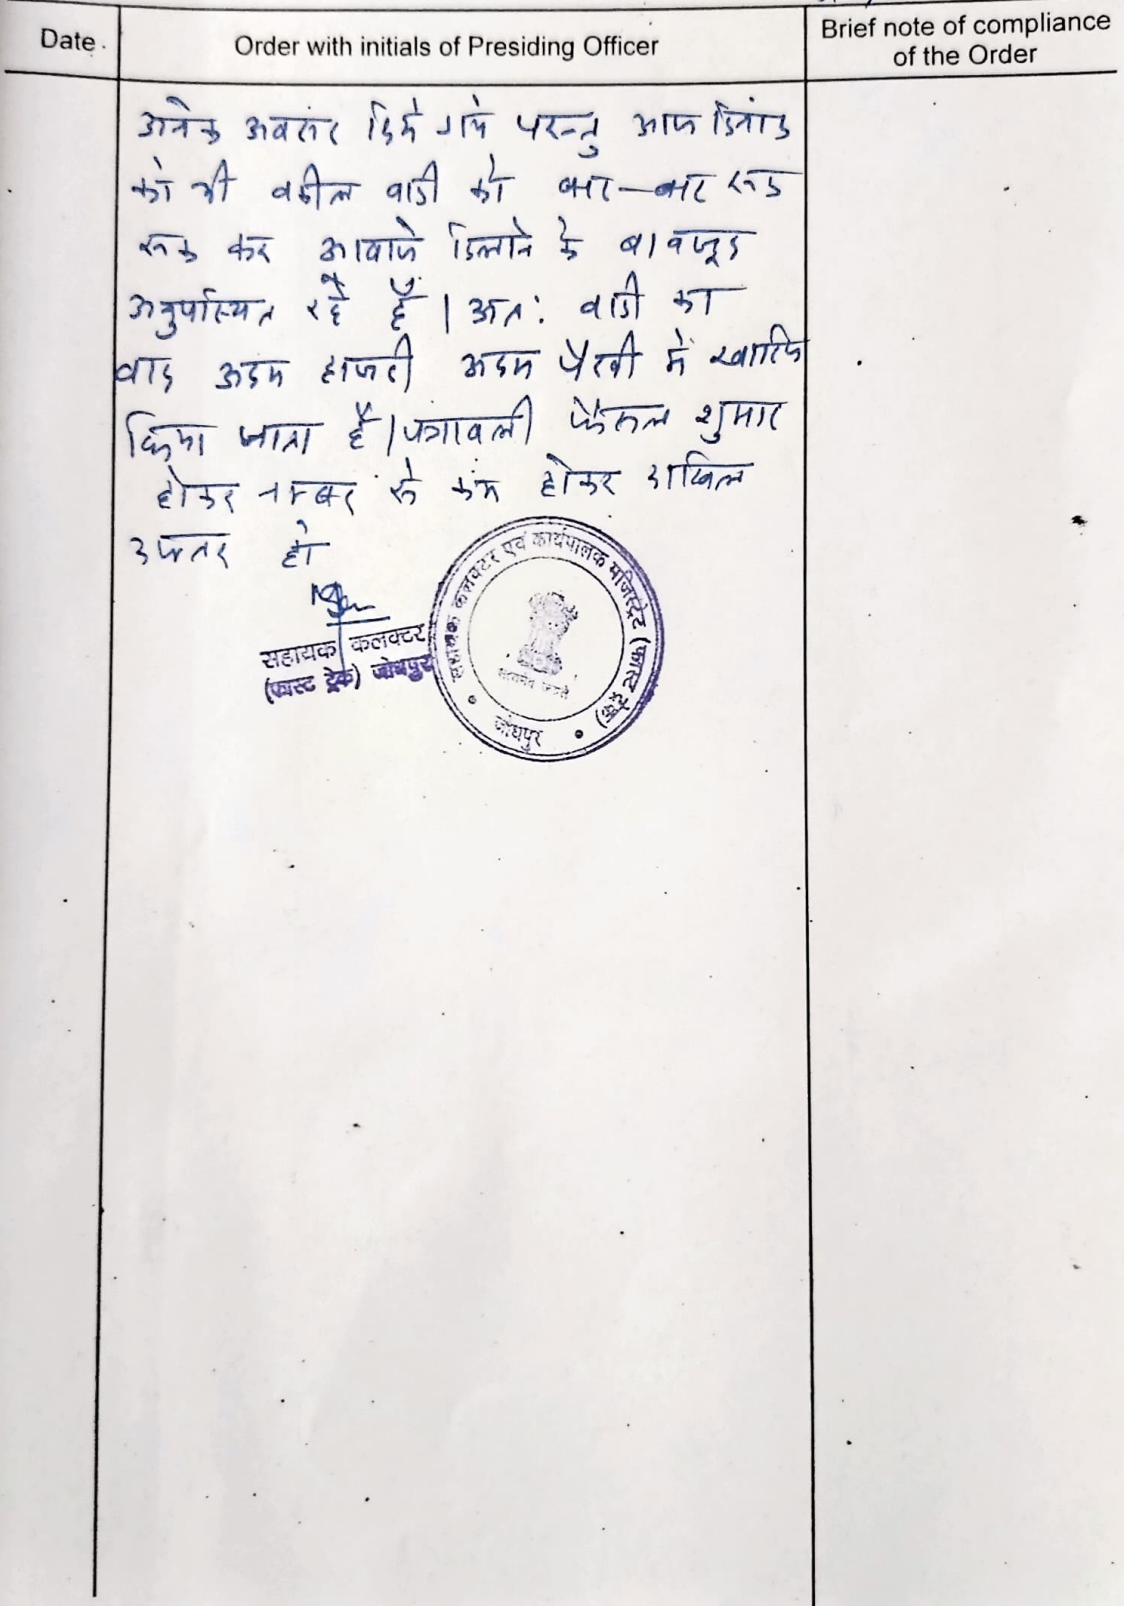 Date.
Order with initials of Presiding Officer
Brief note of compliance
of the Order
अनेक अवसर दिये गये परन्तु आज दिनांक
को भी वकील वादी को बार-बार रूक
रूक कर आवाजे दिलाने के बावजूद
अनुपस्थित रहे हैं। अतः वादी का
वाद अदम हाजरी अदम पैरवी में खारिज
किया जाता है। पत्रावली फैसल शुमार
होकर नम्बर से कम होकर दाखिल
दफ्तर हो
सहायक कलक्टर
(फास्ट ट्रेक) जोधपुर
सहायक कलक्टर एवं कार्यपालक मजिस्ट्रेट (फास्ट ट्रेक)
जोधपुर
सत्यमेव जयते